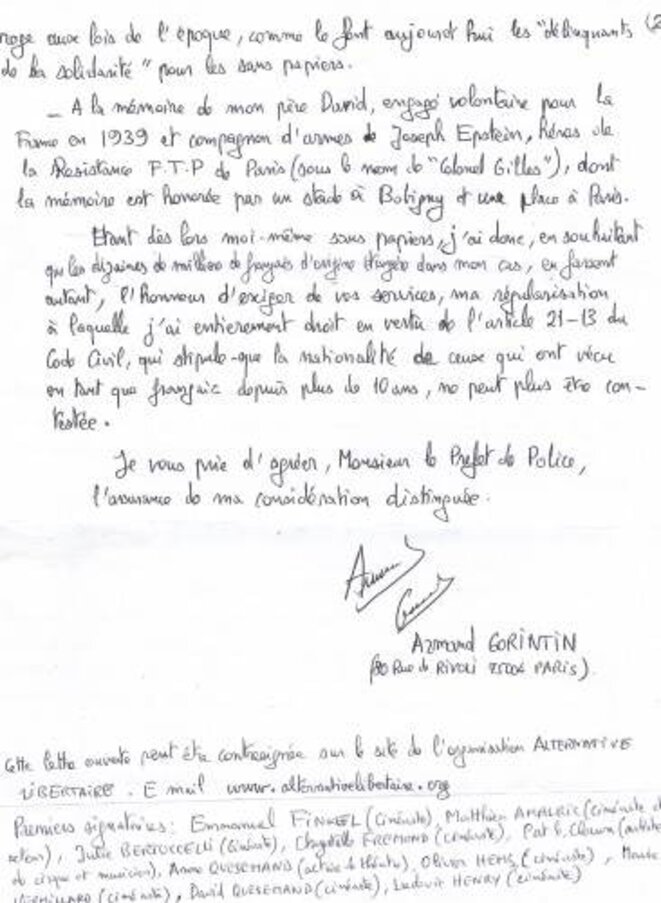 aux lois de l'époque, comme le font aujourd'hui les "délinquants (2
de la solidarité" pour les sans papiers.
– A la mémoire de mon père David, engagé volontaire pour la
France en 1939 et compagnon d'armes de Joseph Epstein, héros de
la Resistance F.T.P de Paris (sous le nom de "Colonel Gilles"), dont
la mémoire est honorée par un stade à Bobigny et une place à Paris.
Etant dès lors moi-même sans papiers, j'ai donc, en souhaitant
que les dizaines de milliers de français d'origine étrangère dans mon cas, en fassent
autant, l'honneur d'exiger de vos services, ma régularisation
à laquelle j'ai entièrement droit en vertu de l'article 21-13 du
Code Civil, qui stipule que la nationalité de ceux qui ont vécu
en tant que français depuis plus de 10 ans, ne peut plus être con-
testée.
Je vous prie d'agréer, Monsieur le Préfet de Police,
l'assurance de ma considération distinguée.
Armand GORINTIN
Rue de RIVOLI 75004 PARIS).
Cette lettre ouverte peut être contresignée sur le site de l'organisation ALTERNATIVE
LIBERTAIRE. E mail www.alternativelibertaire.org
Premiers signataires: Emmanuel FINKEL (cinéaste), Matthieu AMALRIC (cinéaste et
acteur), Julie BERTUCCELLI (cinéaste), FREMOND (cinéaste), Pat le Clown (artiste
de cirque et musicien), Anne QUESEMAND (actrice de théâtre), Oliver (cinéaste),
(cinéaste), David QUESEMAND (cinéaste), Ludovic HENRY (cinéaste)